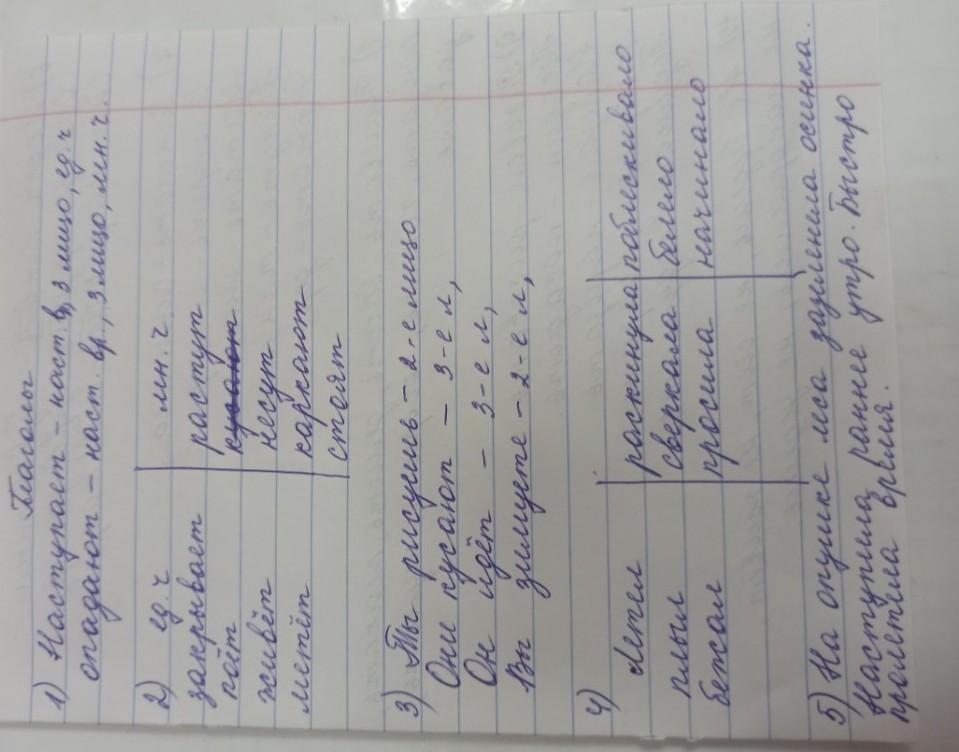 Глаголы
1) Наступает - наст. в, 3 лицо, ед. ч
опадают - наст. вр., 3 лицо, мн. ч.
2) ед. ч мн. ч
закрывает растут
поёт кусают
живёт несут
метёт каркают
стоят
3) Ты рисуешь - 2-е лицо
Они кусают - 3-е л,
Он идёт - 3-е л,
Вы зимуете - 2-е л,
4) Летел раскинула поблескивало
плыл сверкала белело
бежал просила начинало
5) На опушке леса зазеленела осинка.
Наступила раннее утро. Быстро
пролетела время.